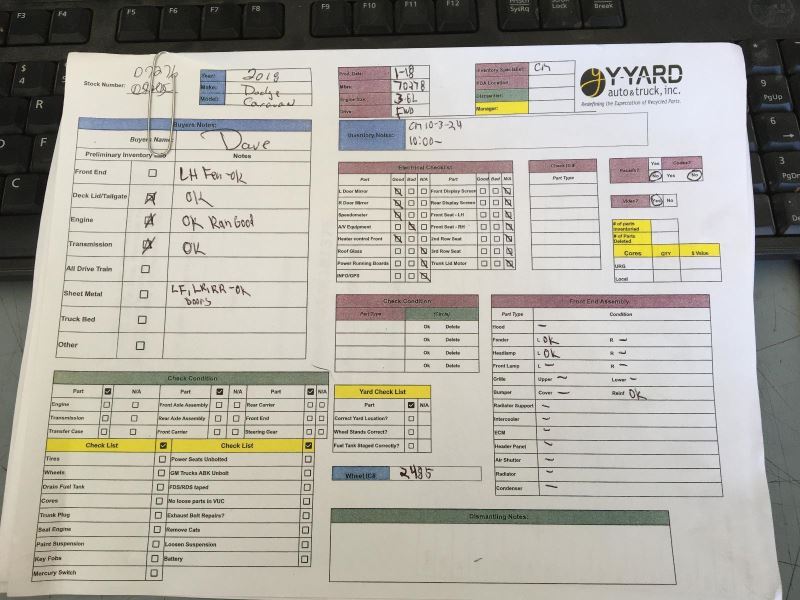 Stock Number:
Year: 2018
Make: Dodge
Model: Caravan
Prod. Date: 1-18
Miles: 70278
Engine Size: 3.6L
Drive FWD
Inventory Specialist: CM
FDA Location:
Dismantler:
Manager:
Y-YARD
auto & truck, inc.
Redefining the Expectation of Recycled Parts.
Buyers Notes:
Buyers Name: Dave
Preliminary Inventory Notes
Front End LH Fen-OK
Deck Lid/Tailgate OK
Engine OK Ran Good
Transmission OK
All Drive Train
Sheet Metal LF, LR, RR-OK
Doors
Truck Bed
Other
Inventory Notes: CM 10-3-24
10:00-
Electrical Checklist
Part Good Bad N/A Part Good Bad N/A
L Door Mirror Front Display Screen
R Door Mirror Rear Display Screen
Speedometer Front Seat - LH
A/V Equipment Front Seat - RH
Heater control Front 2nd Row Seat
Roof Glass 3rd Row Seat
Power Running Boards Trunk Lid Motor
INFO/GPS
Check IC/#
Part Type
Yes Codes?
No Yes No
Video? Yes No
# of parts inventoried
# of Parts Deleted
Cores QTY $ Value
URG
Local
Check Condition
Part Type (Circle)
Ok Delete
Ok Delete
Ok Delete
Ok Delete
Front End Assembly
Part Type Condition
Hood -
Fender L OK R -
Headlamp L OK R -
Front Lamp L - R -
Grille Upper - Lower -
Bumper Cover - Reinf OK
Radiator Support -
Intercooler -
ECM -
Header Panel -
Air Shutter -
Radiator -
Condenser -
Check Condition
Part N/A Part N/A Part N/A
Engine Front Axle Assembly Rear Carrier
Transmission Rear Axle Assembly Front End
Transfer Case Front Carrier Steering Gear
Check List Check List
Tires Power Seats Unbolted
Wheels GM Trucks ABK Unbolt
Drain Fuel Tank FDS/RDS taped
Cores No loose parts in VUC
Trunk Plug Exhaust Bolt Repairs?
Seal Engine Remove Cats
Paint Suspension Loosen Suspension
Key Fobs Battery
Mercury Switch
Yard Check List
Part N/A
Correct Yard Location?
Wheel Stands Correct?
Fuel Tank Staged Correctly?
Wheel IC# 2485
Dismantling Notes: